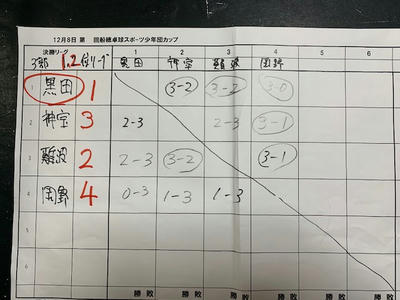 12月8日 第 回船穂卓球スポーツ少年団カップ
決勝リーグ 1 2 3 4 5 6
3部 1,2位リーグ 黒田 神宝 難波 岡野
1 黒田 1 3-2 3-2 3-0
2 神宝 3 2-3 2-3 3-1
3 難波 2 2-3 3-2 3-1
4 岡野 4 0-3 1-3 1-3
5
6
勝 敗 勝 敗 勝 敗 勝 敗 勝 敗 勝 敗